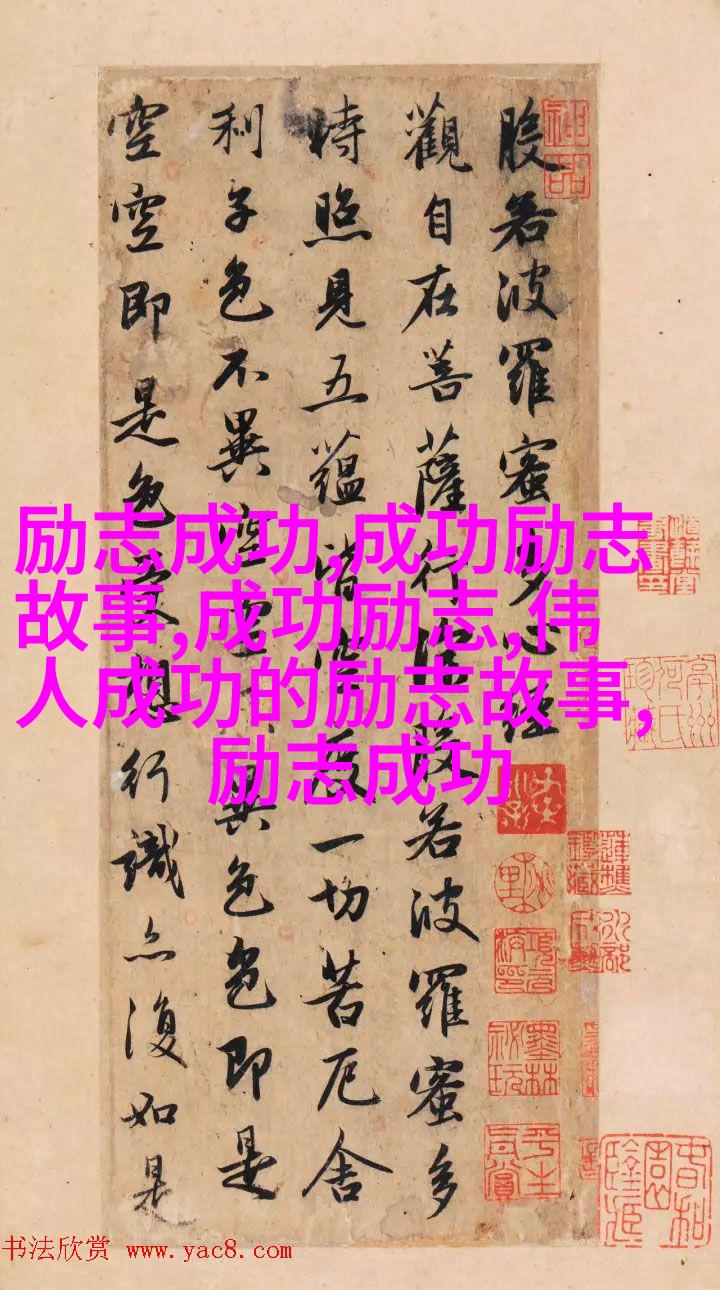 般若波羅蜜多心經
觀自在菩薩行深般若波羅蜜多
時照見五蘊皆空度一切苦厄舍
利子色不異空空不異色色即是
空空即是色受想行識亦復如是
励志成功,成功励志
故事,成功励志,伟
人成功的励志故事,
励志成功
神品
墨林祕玩
书法欣赏 www.yac8.com